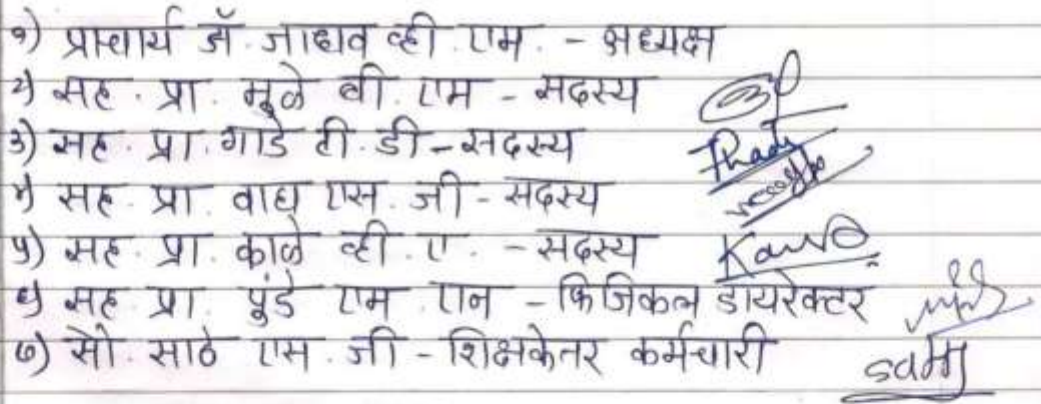 १) प्राचार्य डॉ. जाधव व्ही. एम. - अध्यक्ष
२) सह. प्रा. मुळे बी. एम - सदस्य
३) सह. प्रा. गाडे टी. डी - सदस्य
४) सह. प्रा. वाघ एस. जी - सदस्य
५) सह. प्रा. काळे व्ही. ए. - सदस्य
६) सह. प्रा. पुंडे एम. एन - फिजिकल डायरेक्टर
७) सौ. साठे एस. जी - शिक्षकेतर कर्मचारी